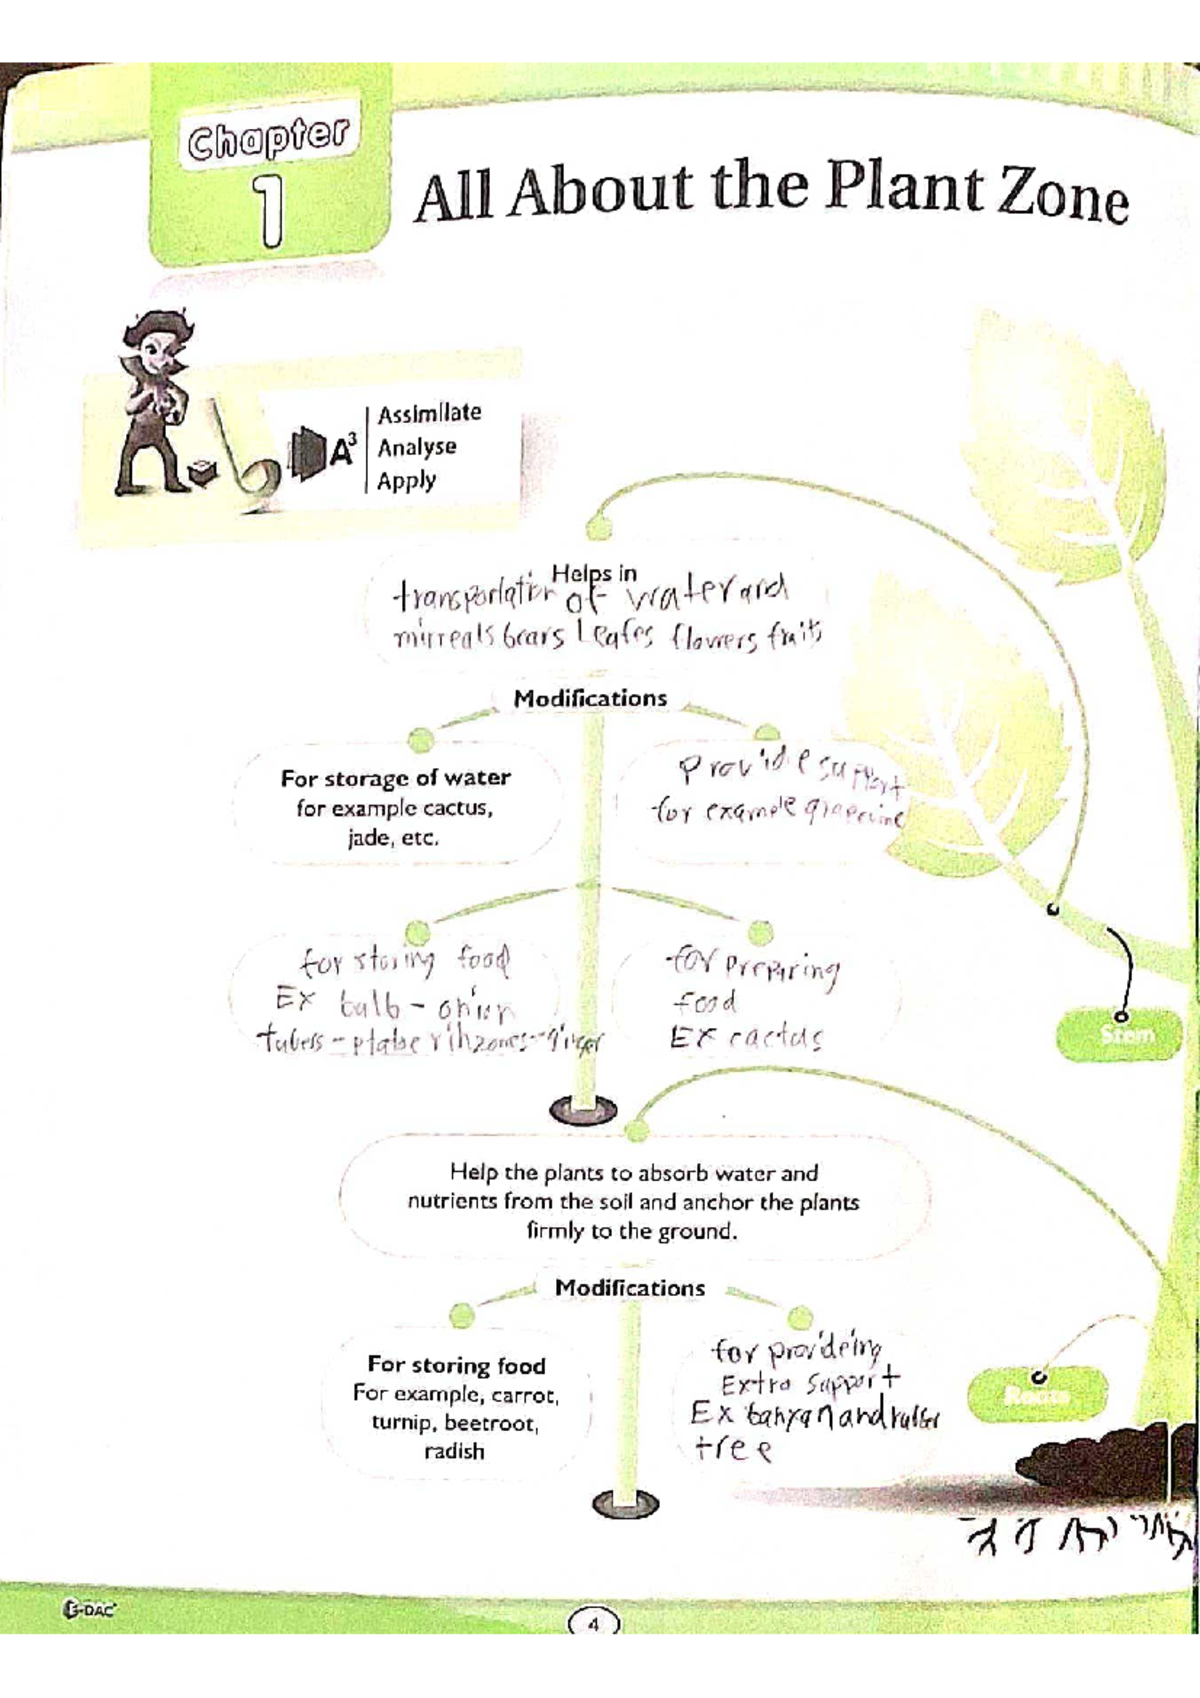 Chapter
1
All About the Plant Zone
A³
Assimilate
Analyse
Apply
Helps in
transportation of water and
mirreals bears leafes flowers fruits
Modifications
For storage of water
for example cactus,
jade, etc.
Providie support
for example grapevine
for storing food
Ex bulb - onion
tubers - ptatae rihzomes - ginger
for preparing
food
Ex cactus
Stem
Help the plants to absorb water and
nutrients from the soil and anchor the plants
firmly to the ground.
Modifications
For storing food
For example, carrot,
turnip, beetroot,
radish
for provideing
Extra support
Ex banyan and rubber
tree
Roots
E-DAC
4